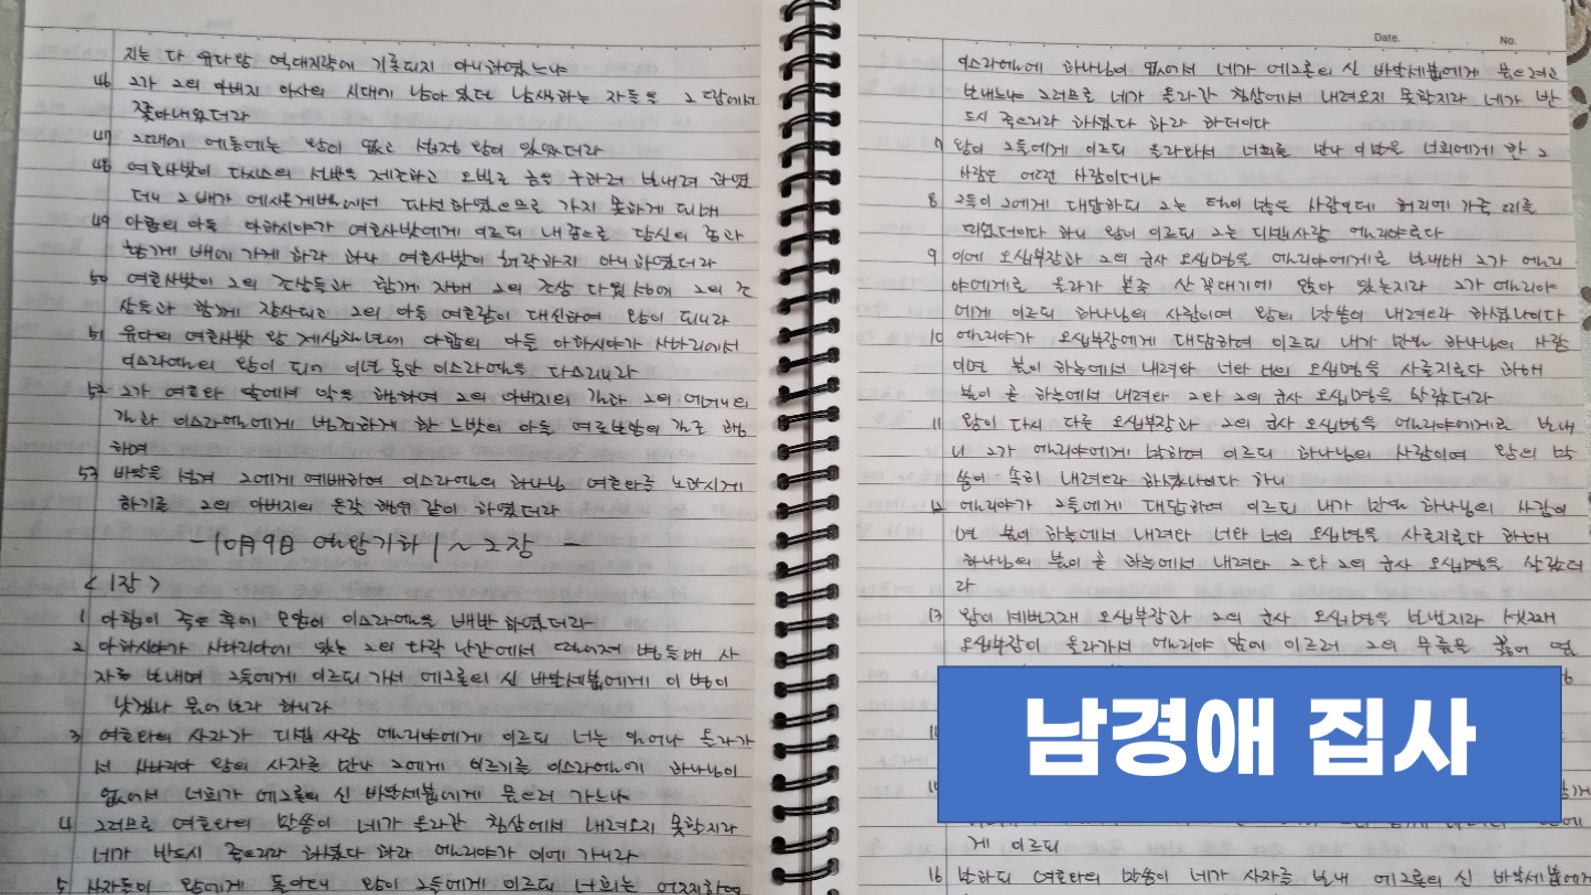 지는 다 유다왕 역대지략에 기록되지 아니하였느냐
46 그가 그의 아버지 아사의 시대에 남아 있던 남색하는 자들을 그 땅에서
쫓아내었더라
47 그때에 에돔에는 왕이 없고 섭정 왕이 있었더라
48 여호사밧이 다시스의 선박을 제조하고 오빌로 금을 구하러 보내려 하였
더니 그 배가 에시온게벨에서 파선하였으므로 가지 못하게 되매
49 아합의 아들 아하시야가 여호사밧에게 이르되 내 종으로 당신의 종과
함께 배에 가게 하라 하나 여호사밧이 허락하지 아니하였더라
50 여호사밧이 그의 조상들과 함께 자매 그의 조상 다윗 성에 그의 조
상들과 함께 장사되고 그의 아들 여호람이 대신하여 왕이 되니라
51 유다의 여호사밧 왕 제십칠년에 아합의 아들 아하시야가 사마리에서
이스라엘의 왕이 되어 이년 동안 이스라엘을 다스리니라
52 그가 여호와 앞에서 악을 행하여 그의 아버지의 길과 그의 어머니의
길과 이스라엘에게 범죄하게 한 느밧의 아들 여로보암의 길로 행
하며
53 바알을 섬겨 그에게 예배하여 이스라엘의 하나님 여호와를 노하시게
하기를 그의 아버지의 온갖 행위 같이 하였더라
-10月 9日 열왕기하 1~2장 -
<1장>
1 아합이 죽은 후에 모압이 이스라엘을 배반하였더라
2 아하시야가 사마리아에 있는 그의 다락 난간에서 떨어져 병들매 사
자를 보내며 그들에게 이르되 가서 에그론의 신 바알세붑에게 이 병이
낫겠나 물어 보라 하니라
3 여호와의 사자가 디셉 사람 엘리야에게 이르되 너는 일어나 올라가
서 사마리아 왕의 사자를 만나 그에게 이르기를 이스라엘에 하나님이
없어서 너희가 에그론의 신 바알세붑에게 물으러 가느냐
4 그러므로 여호와의 말씀이 네가 올라간 침상에서 내려오지 못할지라
네가 반드시 죽으리라 하셨다 하라 엘리야가 이에 가니라
5 사자들이 왕에게 돌아오니 왕이 그들에게 이르되 너희는 어찌하여
Date. No.
이스라엘에 하나님이 없어서 네가 에그론의 신 바알세붑에게 물으려고
보내느냐 그러므로 네가 올라간 침상에서 내려오지 못할지라 네가 반
드시 죽으리라 하셨다 하라 하더이다
7 왕이 그들에게 이르되 올라와서 너희를 만나 이 말을 너희에게 한 그
사람은 어떤 사람이더냐
8 그들이 그에게 대답하되 그는 털이 많은 사람인데 허리에 가죽 띠를
띠었더이다 하니 왕이 이르되 그는 디셉사람 엘리야로다
9 이에 오십부장과 그의 군사 오십명을 엘리야에게로 보내매 그가 엘리
야에게로 올라가 본즉 산 꼭대기에 앉아 있는지라 그가 엘리야
에게 이르되 하나님의 사람이여 왕의 말씀이 내려오라 하셨나이다
10 엘리야가 오십부장에게 대답하여 이르되 내가 만일 하나님의 사람
이면 불이 하늘에서 내려와 너와 너의 오십명을 사를지로다 하매
불이 곧 하늘에서 내려와 그와 그의 군사 오십명을 살랐더라
11 왕이 다시 다른 오십부장과 그의 군사 오십명을 엘리야에게로 보내
니 그가 엘리야에게 말하여 이르되 하나님의 사람이여 왕의 말
씀이 속히 내려오라 하셨나이다 하니
12 엘리야가 그들에게 대답하여 이르되 내가 만일 하나님의 사람이
면 불이 하늘에서 내려와 너와 너의 오십명을 사를지로다 하매
하나님의 불이 곧 하늘에서 내려와 그와 그의 군사 오십명을 살랐더
라
13 왕이 세번째 오십부장과 그의 군사 오십명을 보낸지라 셋째
오십부장이 올라가서 엘리야 앞에 이르러 그의 무릎을 꿇어 엎
남경애 집사
게 이르되
16 말하되 여호와의 말씀이 네가 사자를 보내 에그론의 신 바알세붑에게